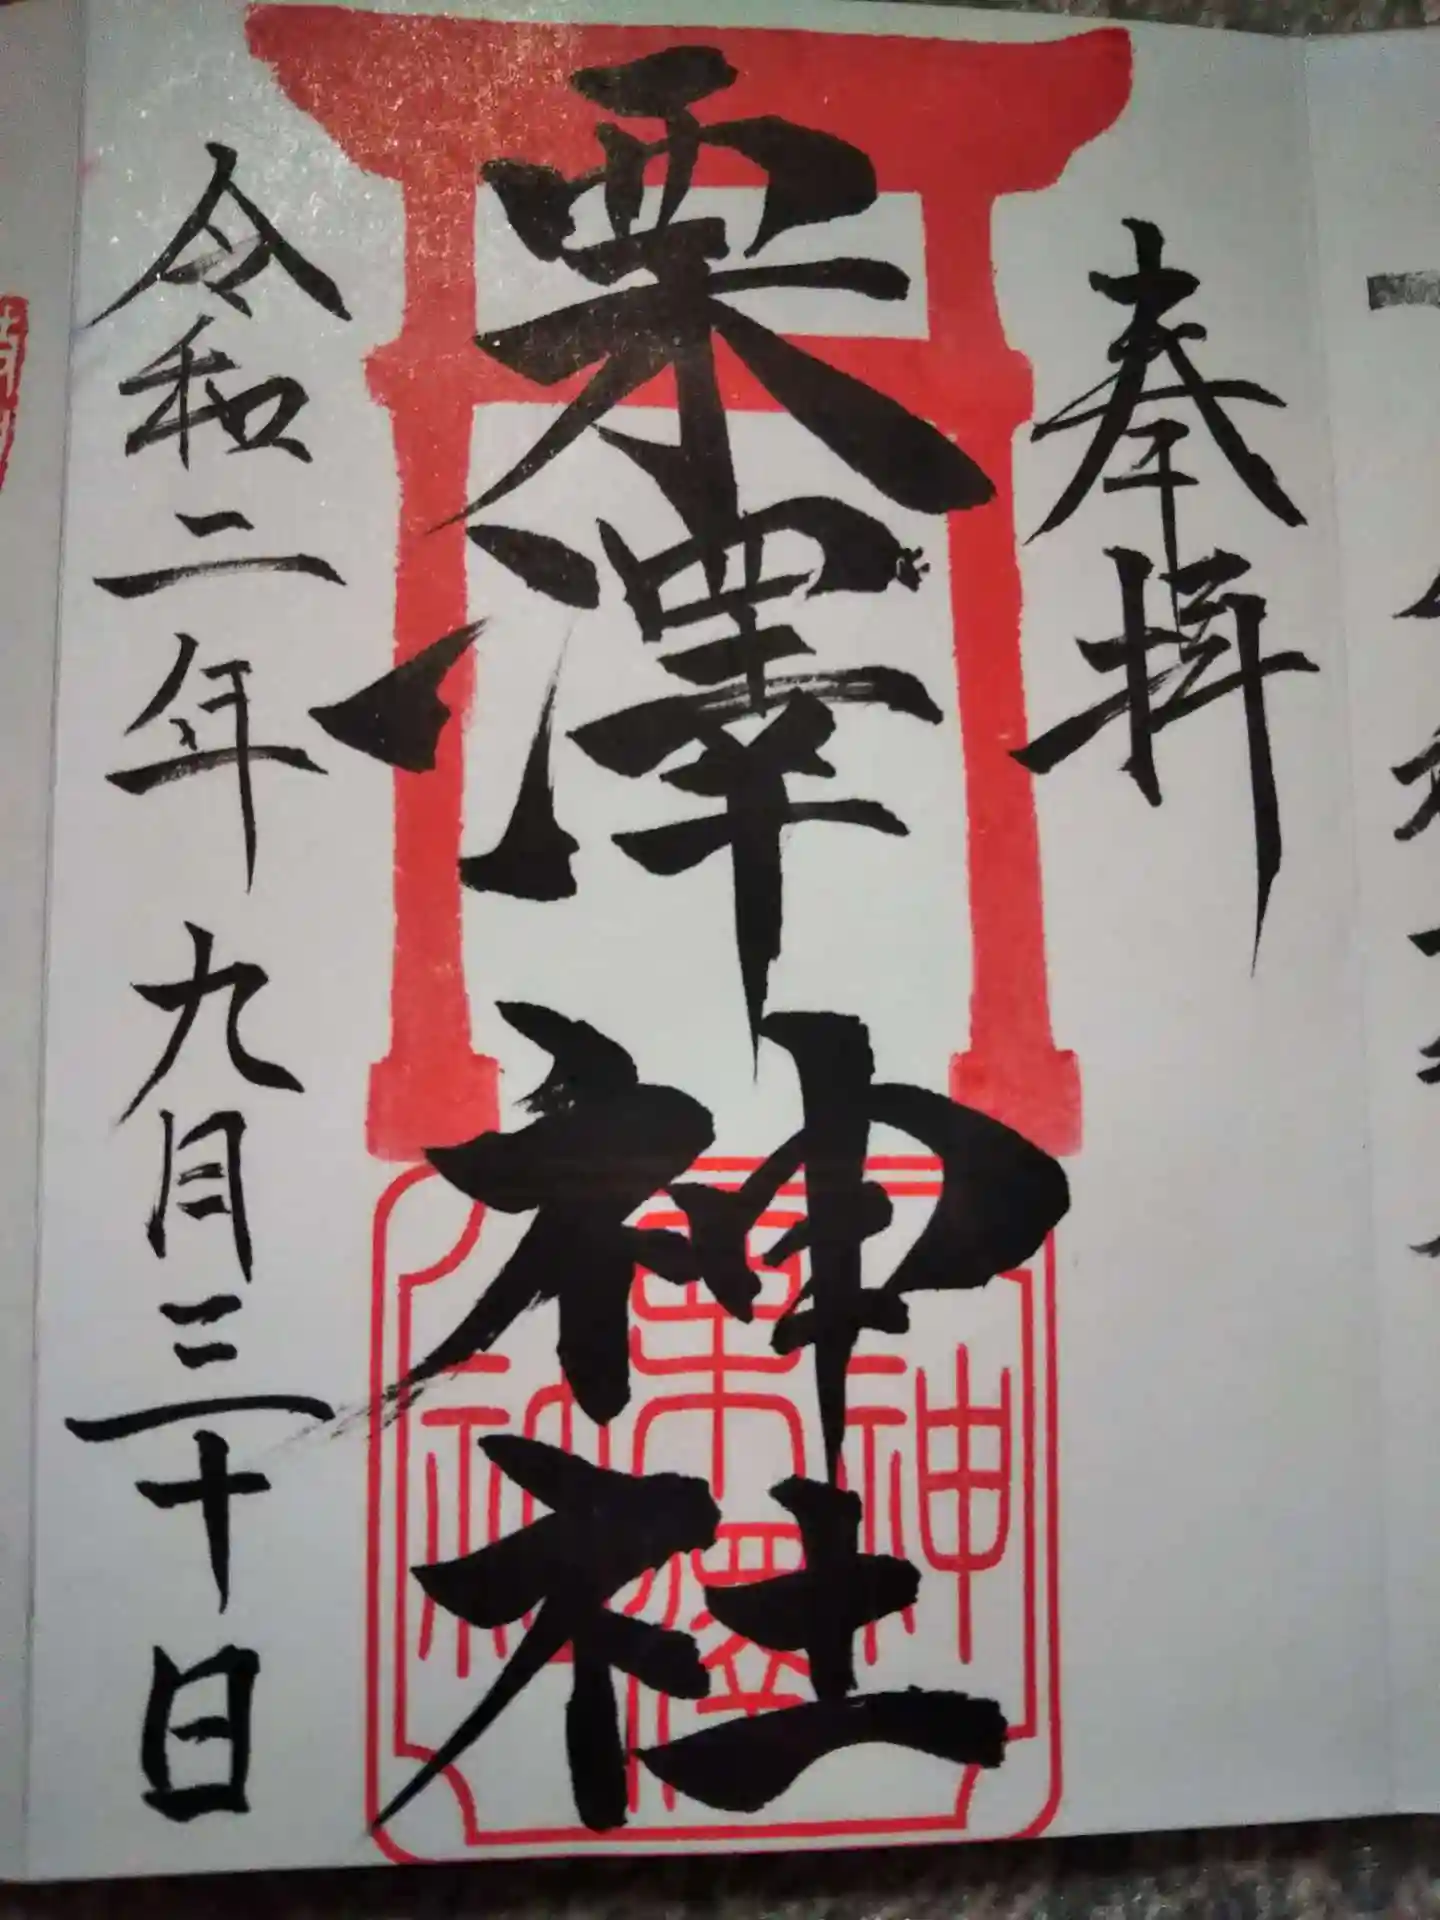 奉拝
栗澤神社
令和二年九月三十日
神
栗澤
社